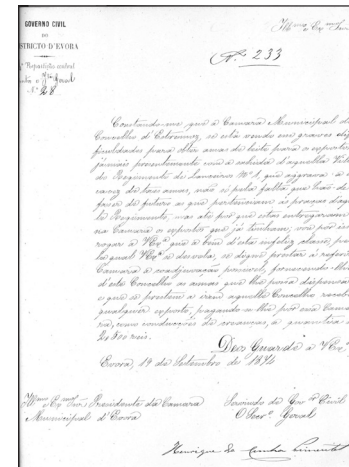 GOVERNO CIVIL
DO
DISTRICTO D'EVORA
Repartição central
Geral
N.º 28
Ill.mo e Ex.mo Snr.
N.º 233
Constando-me que a Camara Municipal do
Concelho d'Estremoz, se está vendo em graves dif
ficuldades para obter amas de leite para os expostos
jámais presentemente com a entrada d'aquella Villa
do Regimento de Lanceiros N.º 1, que aggrava a es
cacez de taes amas, não só pela falta que hão de
fazer de futuro as que pertenceriam ás praças d'aquel
le Regimento, mas até por que estas entregaram
na Camara os expostos que já tinham, vou por isso
rogar a V.Ex.ª que a bem d'esta infeliz classe, pe
la qual V.Ex.ª se desvela, se digne prestar á referida
Camara a coadjuvação possivel, fornecendo-lhe
d'este Concelho as amas que lhe possa dispensar
e que se prestem a irem áquelle Concelho receber
qualquer exposto, pagando-se-lhe por essa Cama
ra, como conducções de creanças, a quantia de
2$300 reis.
Deos Guarde a V.Ex.ª
Evora, 19 de Setembro de 1874
Ill.mo e Ex.mo Snr. Presidente da Camara
Municipal d'Evora
Servindo de Gov.or Civil
O Secr.º Geral
Henrique da Cunha Pimentel